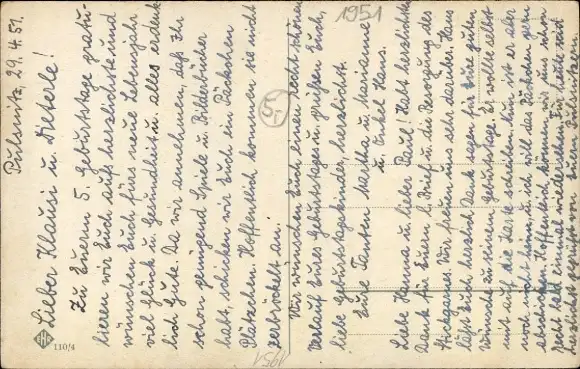 Pulsnitz, 29.4.51.
Lieber Klausi u. Dieterle!
Zu Euerm 5. Geburtstage gratu-
lieren wir Euch aufs herzlichste und
wünschen Euch fürs neue Lebensjahr
viel Glück u. Gesundheit u. alles erdenk
lich Gute. Da wir annehmen, daß Ihr
schon genügend Spiele u. Bilderbücher
habt, schicken wir Euch ein Päckchen
Plätzchen. Hoffentlich kommen sie nicht
zerbröckelt an.
Wir wünschen Euch einen recht schönen
Verlauf Eures Geburtstages u. grüßen Euch,
liebe Geburtstagskinder, herzlichst.
Eure Tanten Martha u. Marianne
u. Onkel Hans.
Liebe Hanna u. lieber Paul! Habt herzlichste
Dank für Euern l. Brief u. die Besorgung des
Stickgarnes. Wir freuen uns sehr darüber. Hans
läßt Euch herzlich Dank sagen für Eure guten
Wünsche zu seinem Geburtstage. Er wollte selbst
mit auf die Karte schreiben. Nun ist er aber
noch nicht u. ich will das Päckchen gern
abschicken. Hoffentlich können wir uns schon
recht bald einmal wiedersehen. Für heute seid
herzlichst gegrüßt von Euern Pulsnitzern.
1951
5,-
1951
110/4